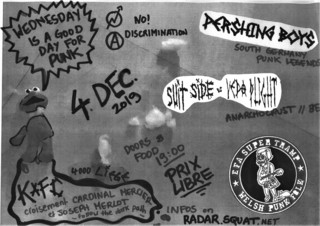 WEDNESDAY
IS A GOOD
DAY FOR
PUNK
NO!
DISCRIMINATION
PERSHING BOYS
SOUTH GERMANY
PUNK LEGENDS
4. DEC.
2019
SUIT SIDE
ANARCHOCRUST // BE
DOORS &
FOOD
19:00
PRIX
LIBRE
EVA SUPER TRAMP
WELSH PUNK FOLK
4000 LIÈGE
KAFÉ
CARDINAL MERCIER
& JOSEPH MERLOT
INFOS on
RADAR.SQUAT.NET